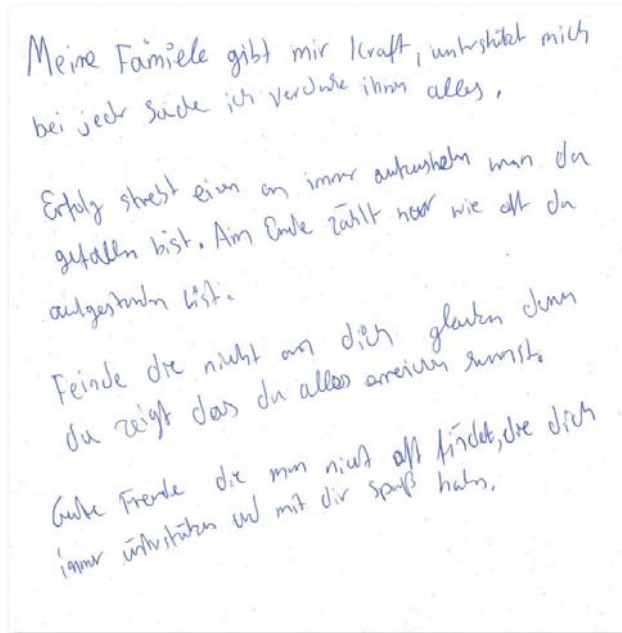 Meine Famiele gibt mir Kraft, unterstützt mich
bei jeder Sache ich verdanke ihnen alles.
Erfolg strebt einen an immer aufzustehen wenn du
gefallen bist. Am Ende zählt nur wie oft du
aufgestanden bist.
Feinde die nicht an dich glauben denen
du zeigt das du alles erreichen kannst.
Gute Freude die man nicht oft findet, die dich
immer unterstützen und mit dir Spaß haben.